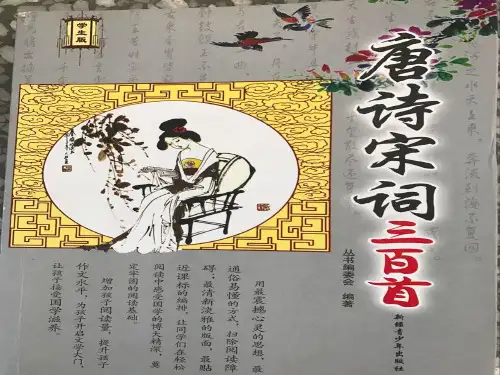 学生版
唐诗宋词三百首
丛书编委会 编著
新疆青少年出版社
用最震撼心灵的思想，最
通俗易懂的方式，扫除阅读障
碍；最清新淡雅的版面，最贴
近课标的编排，让同学们在轻松
阅读中感受国学的博大精深，奠
定牢固的阅读基础。
增加孩子阅读量，提升孩子
作文水平，为孩子开启文学大门，
让孩子接受国学滋养。